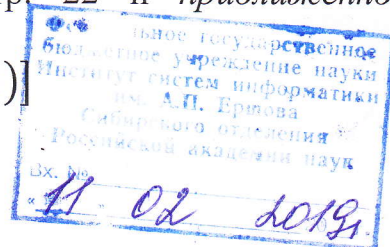 р. 22 и приближенно
)]
льное государственное
бюджетное учреждение науки
Институт систем информатики
им. А.П. Ершова
Сибирского отделения
Российской академии наук
Вх. №
« 11 » 02 2019г.